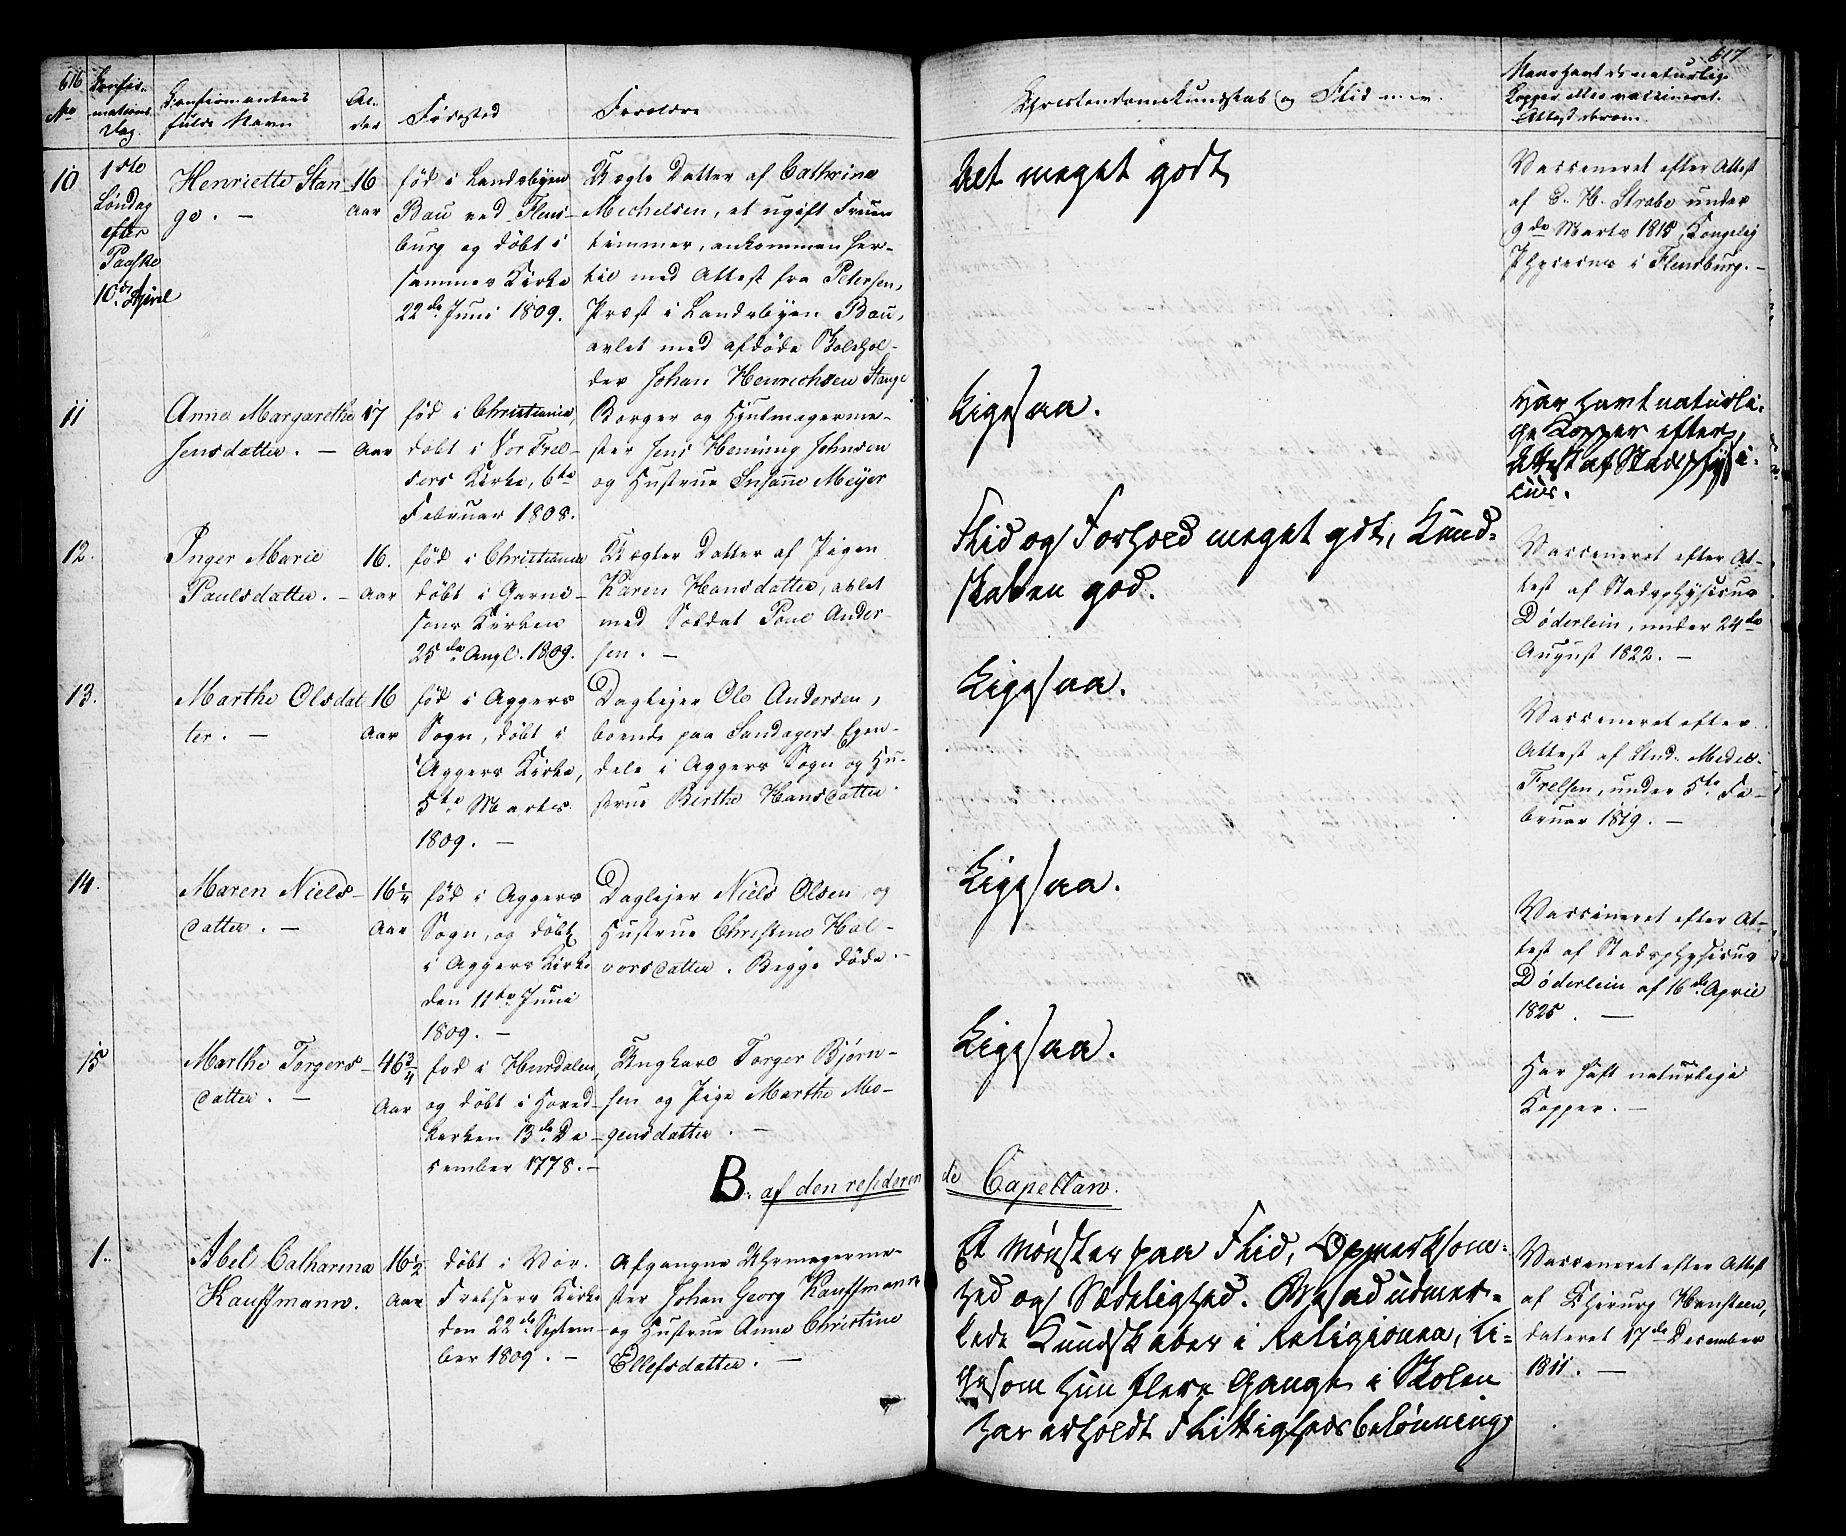 616
No
Confir-
mations
Dag.
Confirmantens
fulde Navn
Al-
der
Fødested
Forældre
10
1ste
Søndag
efter
Paaske
10de April
Henriette Stan
ge. –
16
Aar
fød i Landsbyen
Bau ved Flens-
burg og døbt i
sammes Kirke
22de Juni 1809.
Uægte Datter af Cathrine
Michelsen, et ugift Fruen
timmer, ankommen her-
til med Attest fra Petersen,
Præst i Landsbyen Bau,
avlet med afdøde
Johan Henrichsen Stange
11
Anne Margarethe
Jensdatter. –
17
Aar
fød i Christiania,
døbt i Vor Frel-
sers Kirke, 6te
Februar 1808.
Borger og Hjulmagerme-
ster Jens Henning Johnsen
og Hustrue Susanne Meyer
12.
Inger Marie
Paulsdatter. –
16.
Aar
fød i Christiania
døbt i Garni-
sons Kirken
25de Augl. 1809.
Uægte Datter af Pigen
Karen Hansdatter, avlet
med Soldat Poul Ander-
sen. –
13.
Marthe Olsdat
ter. –
16
Aar
fød i Aggers
Sogn, døbt i
Aggers Kirke,
5te Marts
1809. –
Daglejer Ole Andersen,
boende paa Sandagers Ejen-
dele i Aggers Sogn og Hu-
strue Birthe Hansdatter.
14.
Maren Niels-
datter. –
16 1/4
Aar
fød i Aggers
Sogn, og døbt
i Aggers Kirke
den 11te Juni
1809. –
Daglejer Niels Olsen, og
Hustrue Christine Hal-
vorsdatter. Begge døde. –
15
Marthe Torgers-
datter. –
46 3/4
Aar
fød i Hurdalen,
og døbt i Hoved-
kirken 13de De-
cember 1778. –
Ungkarl Torger Bjørn-
sen og Pige Marthe Mo-
gensdatter. –
B. af den residerende
1.
Abel Catharina
Kauffmann.
16 1/2
Aar
døbt i Vor.
Frelsers Kirke
den 22de Septem-
ber 1809. –
Afgangne Uhrmagerme-
ster Johan Georg Kauffmann
og Hustrue Anne Christine
Ellefsdatter. –
617
Christendomskundskab og Flid m. v.
Naar havt de naturlige
Kopper eller vaccineret.
Attest derom.
Alt meget godt
Vaccineret efter Attest
af C. H. Strabe under
9de Marts 1815 Kongelig
Physicus i Flensburg. –
Ligesaa.
Har havt naturli-
ge Kopper efter
Attest af Stadsphysi-
cus.
Flid og Forhold meget godt, Kund-
skaben god.
Vaccineret efter At-
test af Stadsphysicus
Døderlein, under 24de
August 1822. –
Ligesaa.
Vaccineret efter
Attest af Stud. Medic.
Frelsen, under 5te Fe-
bruar 1819. –
Ligesaa.
Vaccineret efter At-
test af Stadsphysicus
Døderlein af 16de April
1825. –
Ligesaa.
Har haft naturlige
Kopper. –
de Capellan.
Et Mønster paa Flid, Opmærksom-
hed og Sædelighed. Besad udmær-
kede Kundskaber i Religionen, li-
gesom hun flere Gange i Skolen
har erholdt Flittighedsbelønning
Vaccineret efter Attest
af Chirurg Hansteen,
dateret 17de December
1811. –